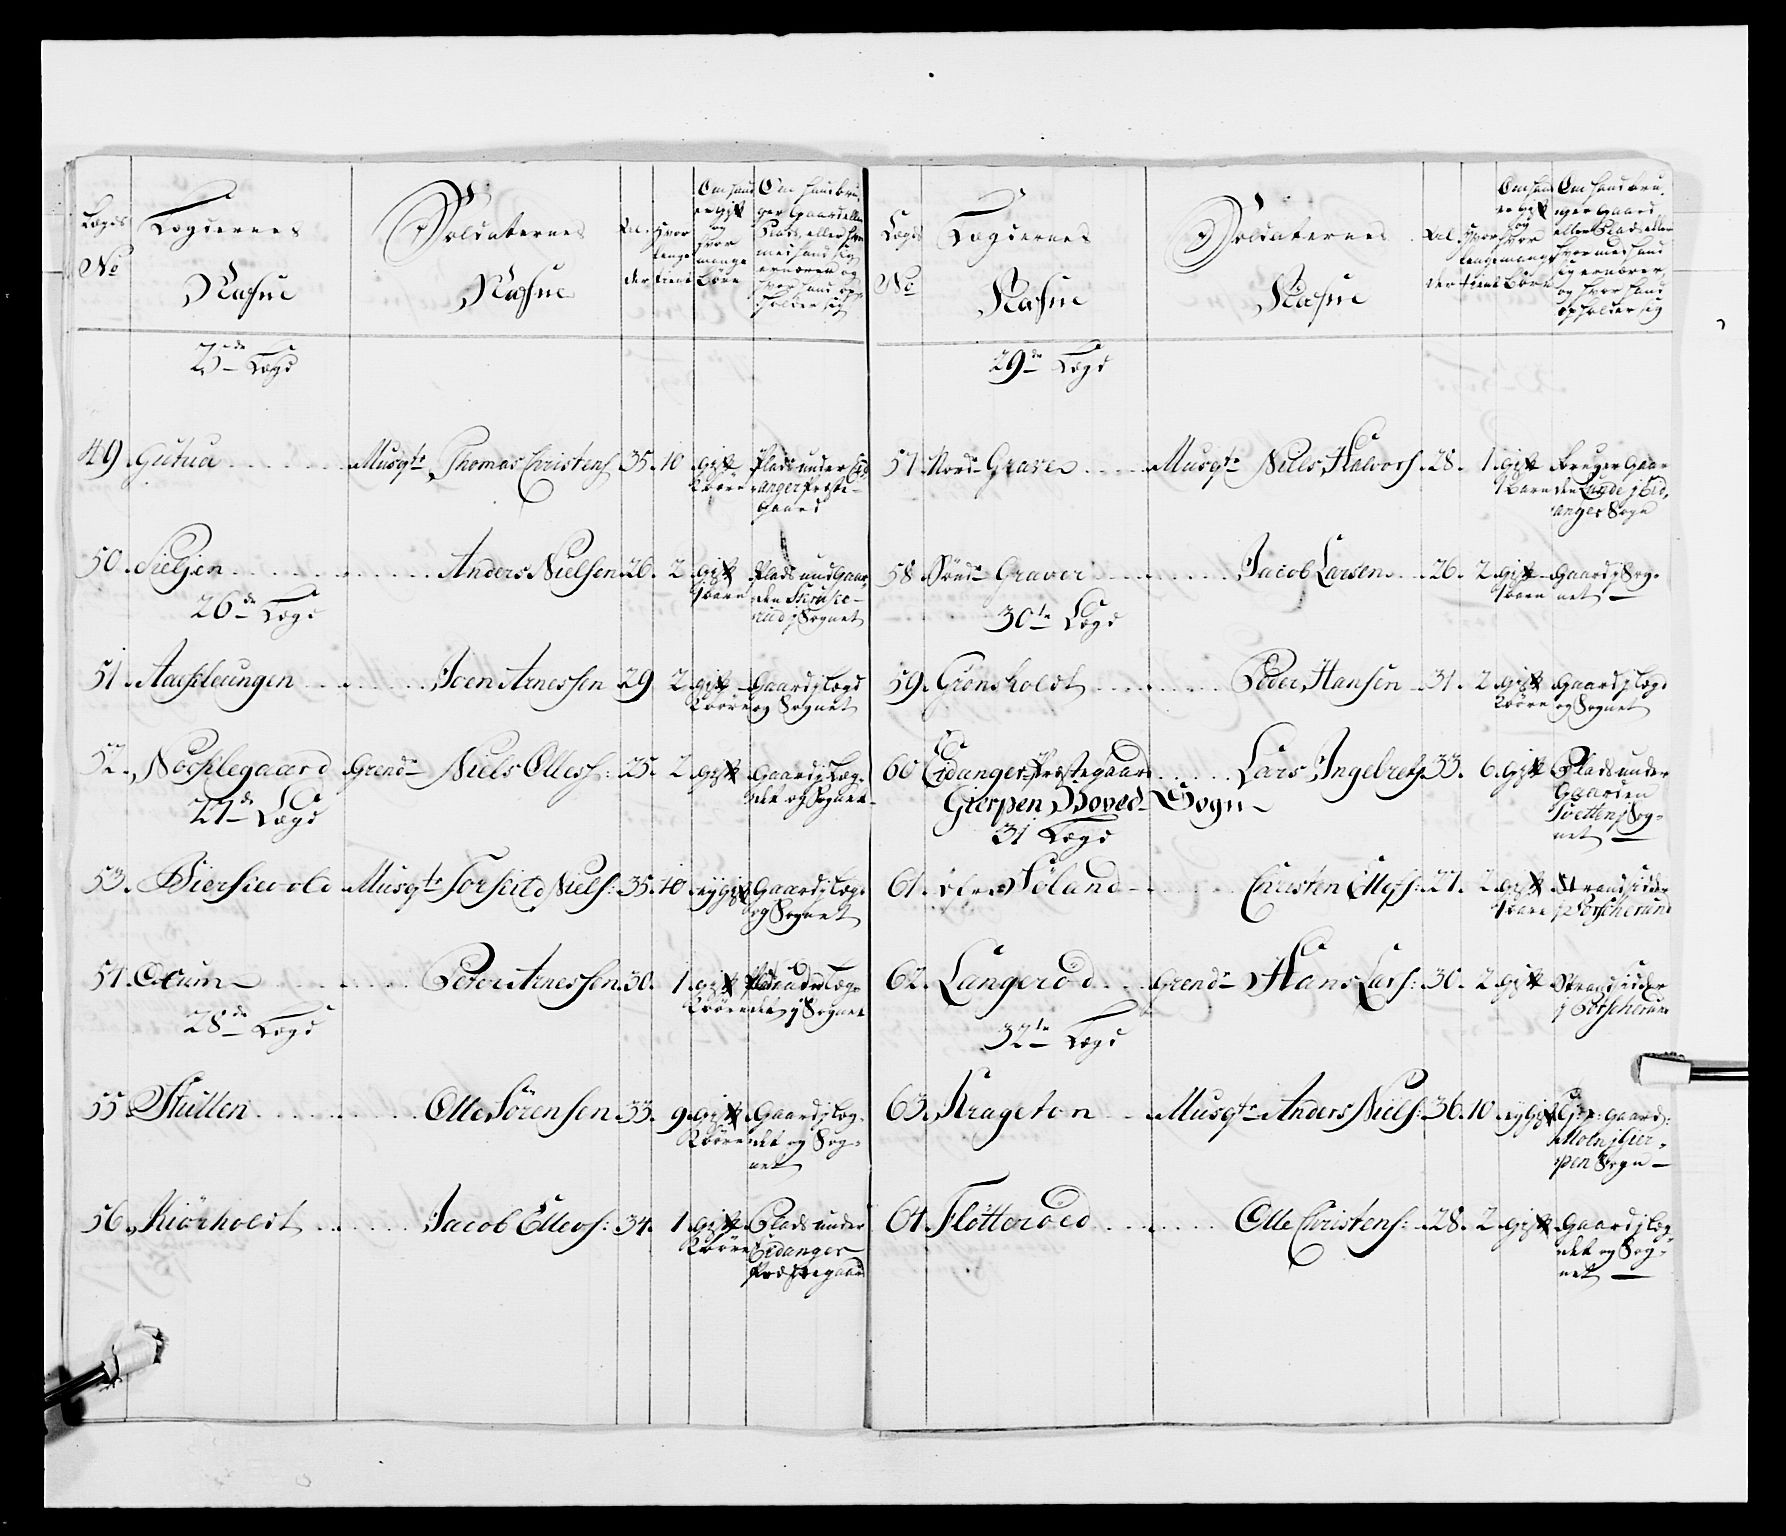 Lægds No
Lægdernes Nafne
Soldaternes Nafne
Al der
Hvor lenge tient
Om hand er gift og hvor mange Børn
Om hand bruger Gaard eller Plads, eller hvormed hand sig ernærer og hvor hand opholder sig
25de Lægd
49. Gutua Musqtr Thomas Christens. 35. 10 gift Plads under Eidanger Præstegaard
50. Sieljen Anders Nielsen 26. 2. gift 1 barn Plads und Gaarden i Sognet
26de Lægd
51. Joen Arnessen 29 2. gift Gaard j Lægd og Sognet
52. Nordlegaard Grend Niels Olless: 25. 2. gift Gaard j Lægdet og Sognet
27de Lægd
53. Musqtr Torkild Niels: 35. 10 ey gift Gaard j Læg. og Sognet
54. Peder Arnessen 30. 1. gift Plads under Lægdet j Sognet
28de Lægd
55 Skillen Olle Sörensen 33. 9. gift Gaard j Lægdet og Sognet
56. Kiörholdt Jacob Ellevs: 34. 1. gift Plads under Eidanger Præstegaard
Lægds No
Lægdernes Nafne
Soldaternes Nafne
Al der
Hvor lenge tient
Om hand er gift og hvor mange Børn
Om hand bruger Gaard eller Plads eller hvormed hand sig ernærer, og hvor hand opholder sig
29de Lægd
57. Nord Graver Musqtr Niels Halvors. 28. 1. gift 1 Barn Bruger Gaarden Lunde j Eidanger Sogn
58. Sönd Graver Jacob Larsen 26. 2. gift 1 barn Gaard j Sognet
30te Lægd
59. Grönsholdt Peder Hansen 31. 2. gift Gaard j Lægd og Sognet
60 Eidanger Præstegaard Lars Ingebrets. 33. 6. gift Plads under Gaarden Tveten j Sognet
Gierpen Hoved Sogn
31 Lægd
61. Christen Ellefs: 27. 2. gift 1 barn Strandsidder j Porsgrund
62. Langeröd Grend Hans Lars: 30. 2. gift Strandsidder j Porsgrund
32te Lægd
63. Krageton Musqtr Anders Niels: 36. 10 ey gift Gaard Gierpen Sogn
64. Flötteröed Olle Christens: 28. 2. gift Gaard j Lægdet og Sognet